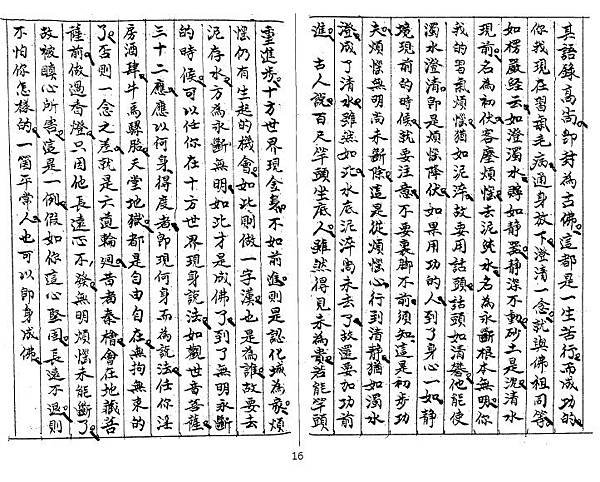 其語錄高尚即封為古佛。這都是一生苦行而成功的
你我現在習氣毛病通身放下澄清一念就與佛祖同等
如楞嚴經云如澄濁水貯如靜器靜深不動砂土自沉清水
現前名為初伏客塵煩惱去泥純水名為永斷根本無明你
我的習氣煩惱猶如泥滓故要用話頭話頭如清礬他能使
濁水澄清即是煩惱降伏如果用功的人到了身心一如靜
境現前的時候就要注意不要裏腳不前須知這是初步功
夫煩惱無明尚未斷除這是從煩惱心行到清靜猶如濁水
澄成了清水雖然如此水底泥滓尚未去了故還要加功前
進。古人說百尺竿頭坐底人雖然得見未為真若能竿頭
重進步十方世界現金身不如前進則是認化城為家煩
惱仍有生起的機會如此則做一字漢也是為難故要去
泥存水方為永斷無明如此才是成佛了到了無明永斷
的時候可以任你在十方世界現身說法如觀世音菩薩
三十二應應以何身得度者即現何身而為說法任你淫
房酒肆牛馬騾胎天堂地獄都是自由自在無拘無束的
了否則一念之差就是六道輪迴昔者秦檜會在地藏菩
薩前做過香燈只因他長遠心不發無明煩惱未能斷了
故被瞋心所害這是一例假如你這心堅固長遠不退則
不怕你怎樣的一個平常人也可以即身成佛
16